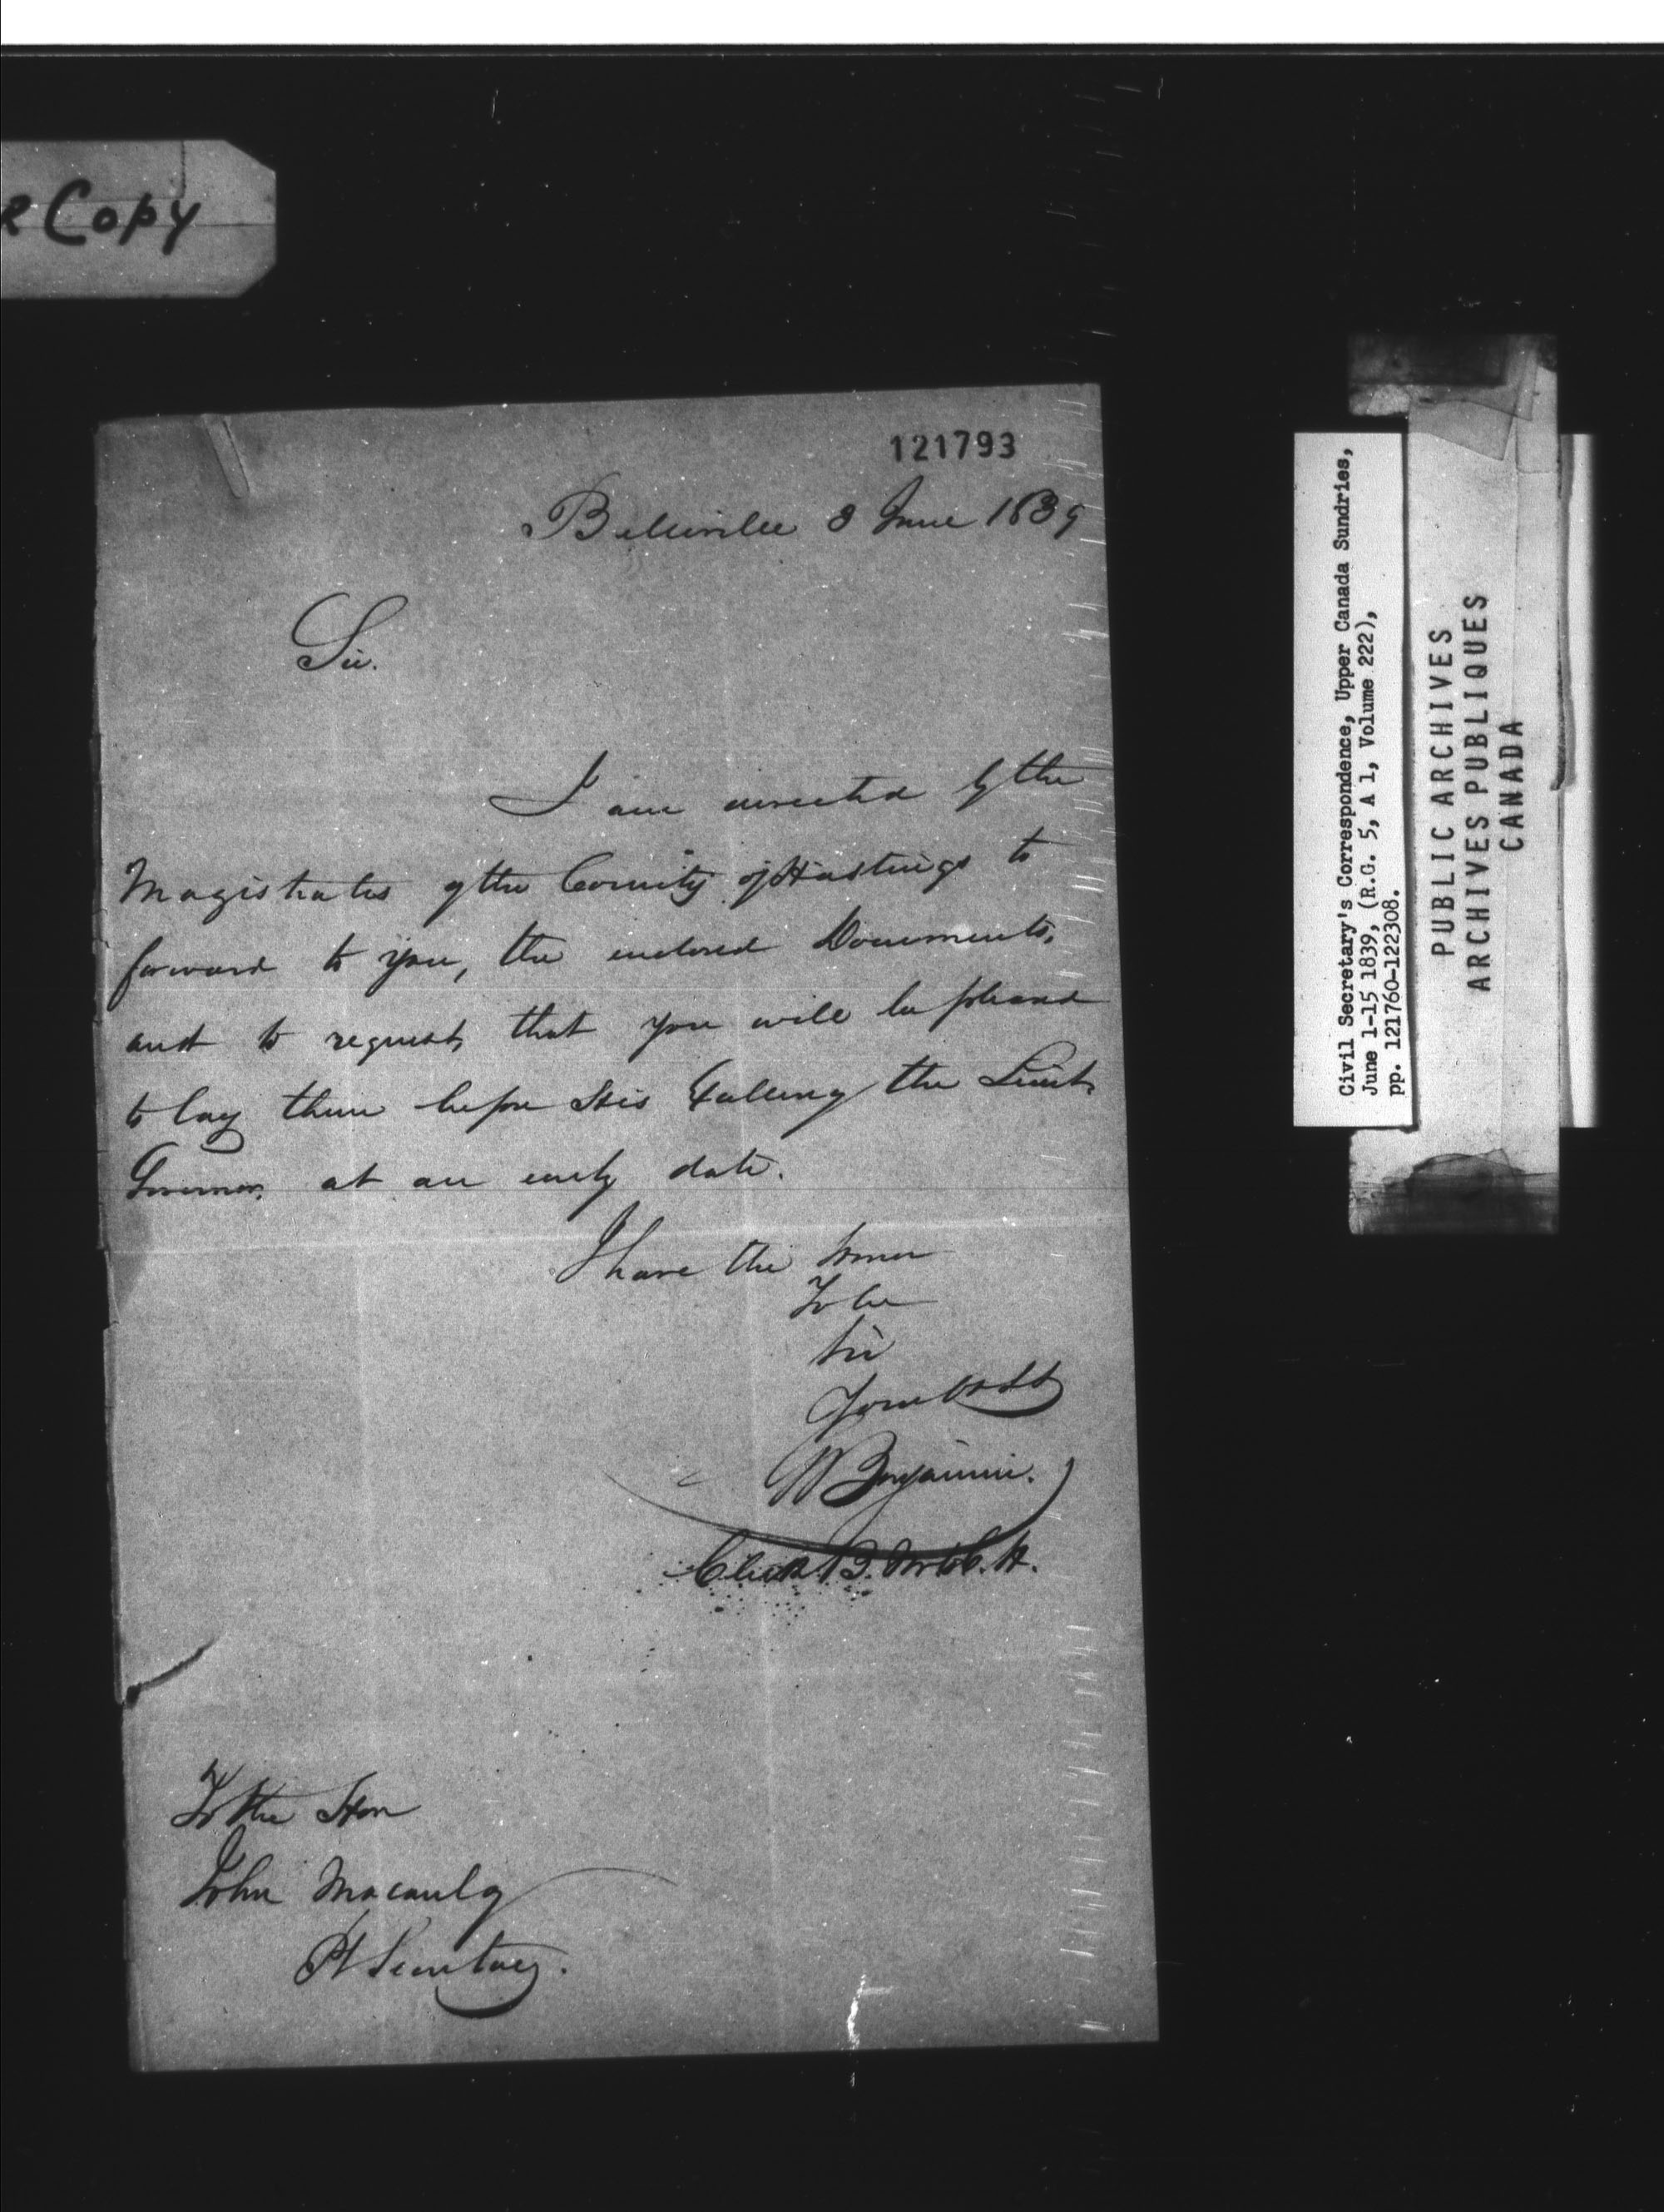 Copy
121793
Belleville 3 June 1839
Sir.
I am directed by the
Magistrates of the County of Hastings to
forward to you, the enclosed Documents,
and to request, that you will be pleased
to lay them before His Excellency the Lieut.
Governor, at an early date.
I have the honor
To be
Sir
Your Ob St
Benjamin.
Clerk
To the Hon
John Macaulay
Secretary.
Civil Secretary's Correspondence, Upper Canada Sundries,
June 1-15 1839, (R.G. 5, A 1, Volume 222),
pp. 121760-122308.
PUBLIC ARCHIVES
ARCHIVES PUBLIQUES
CANADA